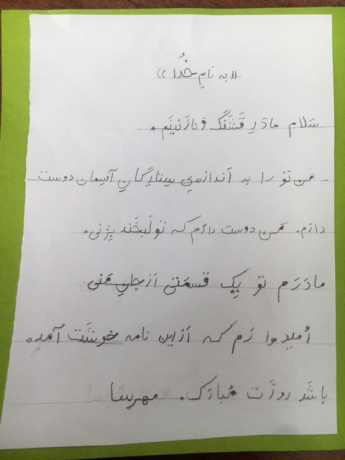 «به نامِ خُدا»
سَلام مادَرِ قَشَنگ و نازَنینَم.
مَن تو را به اَندازه‌یِ سِتارِگانِ آسِمان دوست
دارَم. مَن دوست دارَم که تو لَبخَند بِزَنی.
مادَرَم تو یِک قِسمَتی اَز جانِ مَنی
اُمیدوارَم که اَز این نامه خوشَت آمَده
باشَد روزَت مُبارَک. مهرسا